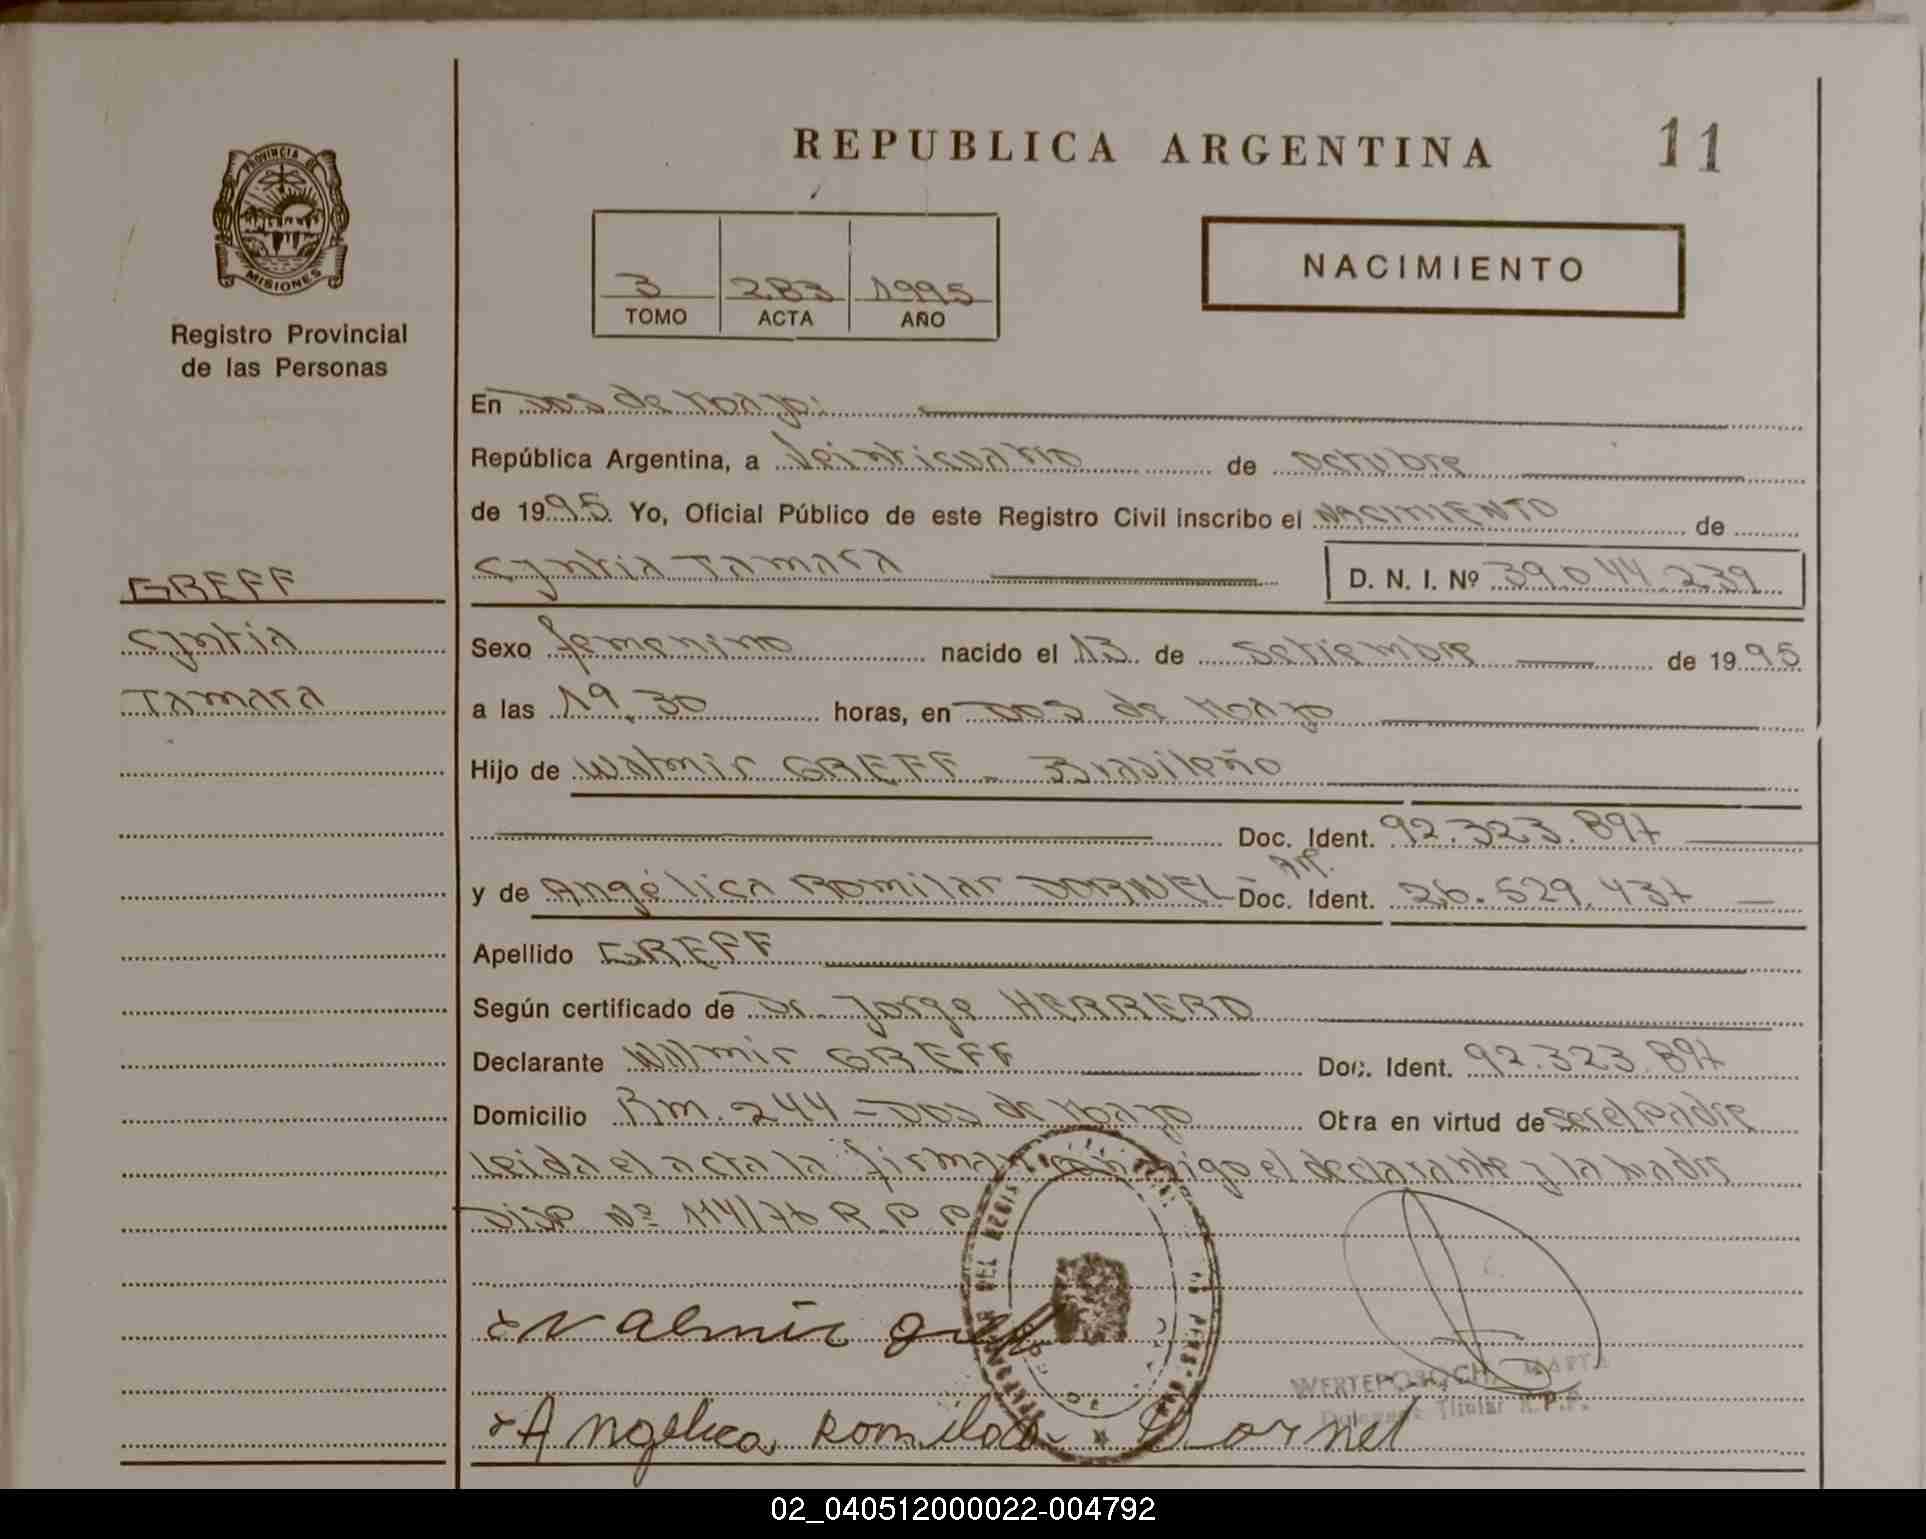 REPUBLICA ARGENTINA
11
PROVINCIA DE
MISIONES
Registro Provincial
de las Personas
3 283 1995
TOMO ACTA AÑO
NACIMIENTO
En Dos de Mayo:
República Argentina, a Veinticuatro de octubre
de 1995. Yo, Oficial Público de este Registro Civil inscribo el NACIMIENTO de
Cyntia Tamara D. N. I. Nº 39.044.239
GREFF
Cyntia
Tamara
Sexo femenino nacido el 13 de Setiembre de 1995
a las 19,30 horas, en Dos de Mayo
Hijo de Walmir GREFF - Brasileño
Doc. Ident. 92.323.897
y de Angélica Romilar DORNEL - Ar. Doc. Ident. 26.529.437
Apellido GREFF
Según certificado de Dr. Jorge HERRERO
Declarante Walmir GREFF Doc. Ident. 92.323.897
Domicilio Km. 244 - Dos de Mayo Obra en virtud de ser el padre
Leida el acta la firman conmigo el declarante y la Madre
Disp Nº 114/76 R.P.P
Valmir
Angelica Dornel
Titular R.P.P.
02_040512000022-004792